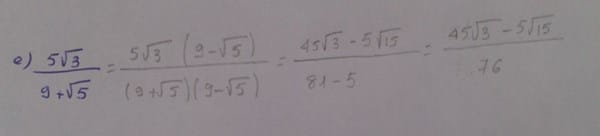 e) \frac{5\sqrt{3}}{9+\sqrt{5}} = \frac{5\sqrt{3} (9-\sqrt{5})}{(9+\sqrt{5})(9-\sqrt{5})} = \frac{45\sqrt{3}-5\sqrt{15}}{81-5} = \frac{45\sqrt{3}-5\sqrt{15}}{76}